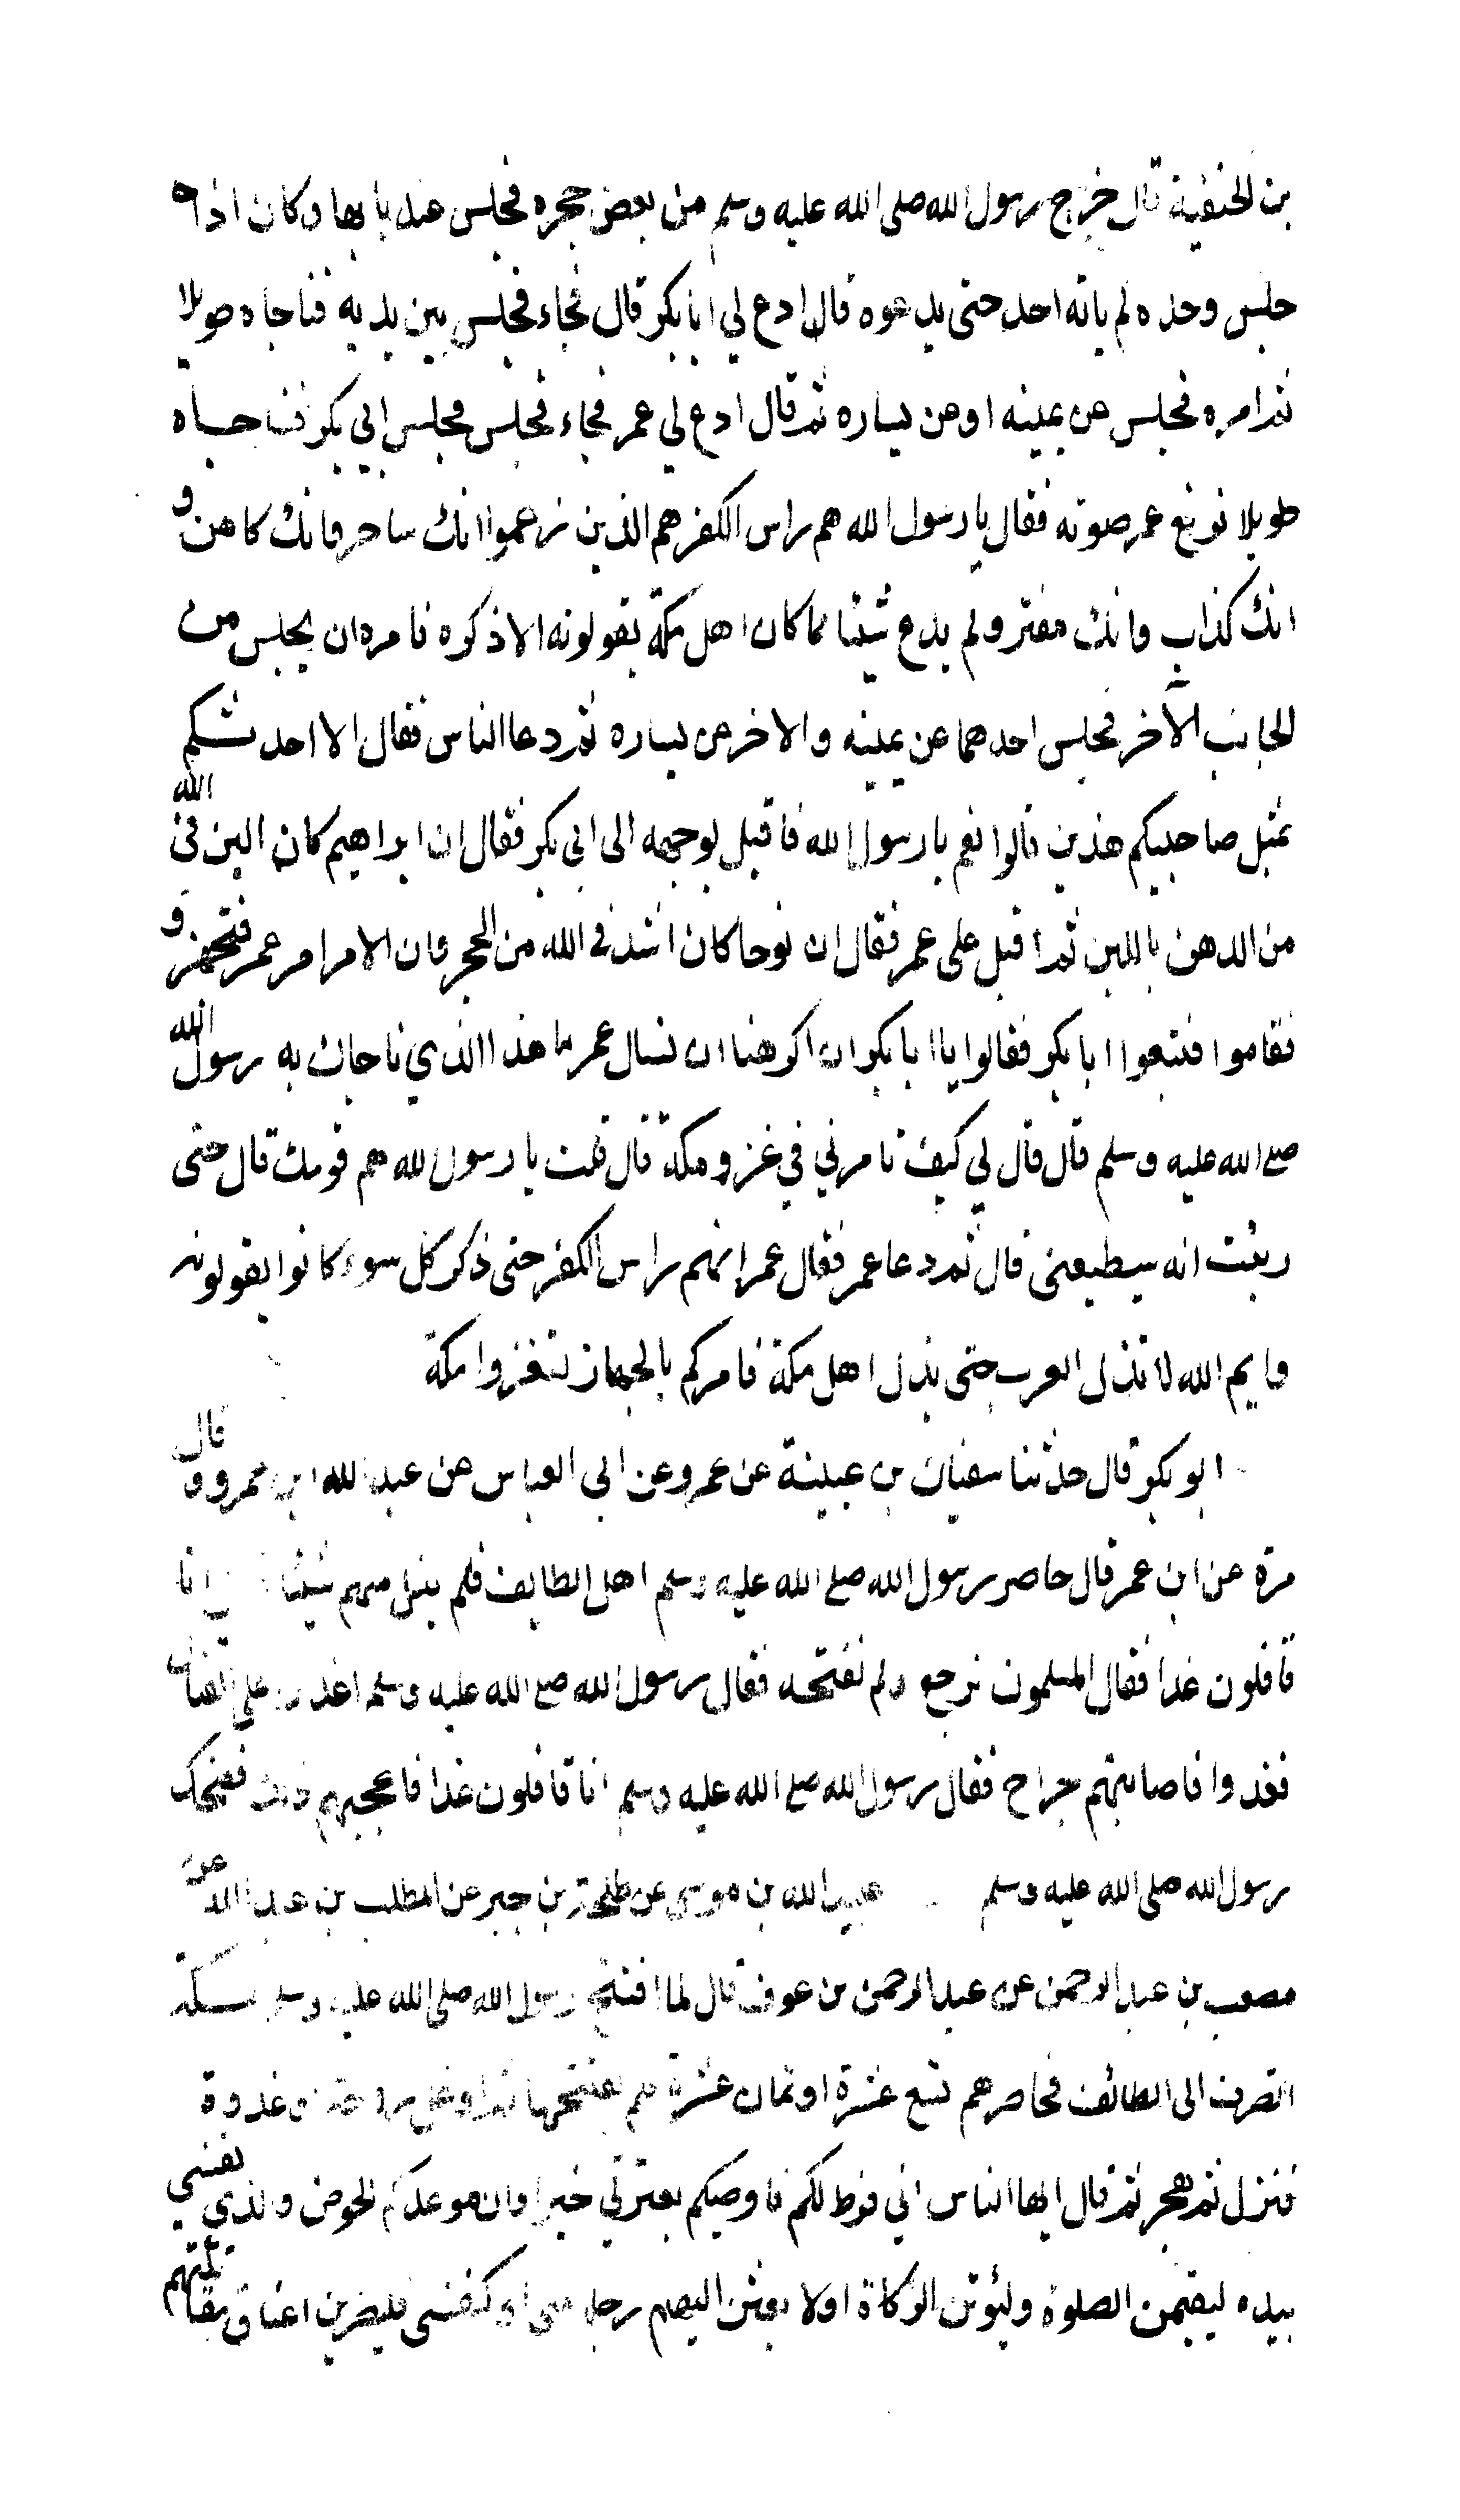 بن الحنفية قال خرج رسول الله صلى الله عليه وسلم من بعض حجره فجلس عند بابها وكان اذا
جلس وحده لم ياته احد حتى يدعوه قال ادع لي ابا بكر قال فجاء فجلس بين يديه فناجاه طويلا
ثم امره فجلس عن يمينه او عن يساره ثم قال ادع لي عمر فجاء فجلس مجلس ابي بكر فناجاه
طويلا فرفع عمر صوته فقال يا رسول الله هم راس الكفر هم الذين زعموا انك ساحر وانك كاهن و
انك كذاب وانك مفتر ولم يدع شيئا مما كان اهل مكة يقولونه الا ذكره فامره ان يجلس من
الجانب الآخر فجلس احدهما عن يمينه والاخر عن يساره ثم دعا الناس فقال الا احدثكم
بمثل صاحبيكم هذين قالوا نعم يا رسول الله فاقبل بوجهه الى ابي بكر فقال ان ابراهيم كان الين في الله
من الدهن باللبن ثم اقبل على عمر فقال ان نوحا كان اشد في الله من الحجر وان الامر امر عمر فتجهزو
فقاموا فتبعوا ابا بكر فقالوا يا ابا بكر ان اكرهنا ان نسال عمر ما هذا الذي ناجاك به رسول الله
صلع الله عليه وسلم قال قال لي كيف تامرني في غزو مكة قال قلت يا رسول لله هم قومك قال حتى
ريئت انه سيطيعني قال ثم دعا عمر فقال عمر انهم راس الكفر حتى ذكر كل سوء كانوا يقولونه
وايم الله لا تذل العرب حتى يذل اهل مكة فامركم بالجهاز لتغزوا مكة
ابو بكر قال حدثنا سفيان بن عيينة عن عمرو عن ابي العباس عن عبد الله ابن عمرو وقال
مرة عن ابن عمر قال حاصر رسول الله صلع الله عليه وسلم اهل الطايف فلم ينل منهم شيئا انا
قافلون غدا فقال المسلمون نرجع ولم نفتحه فقال رسول الله صلع الله عليه وسلم اغدوا على القتال
فغدوا فاصابتهم جراح فقال رسول الله صلع الله عليه وسلم انا قافلون غدا فاعجبهم ذلك فضحك
رسول الله صلى الله عليه وسلم عبيد الله بن موسى عن طلحة بن جبر عن المطلب بن عبد الله عن
مصعب بن عبد الرحمن عن عبد الرحمن بن عوف قال لما افتتح رسول الله صلى الله عليه وسلم مكة
انصرف الى الطائف فحاصرهم تسع عشرة او ثمان عشرة فلم يفتتحها ثم اوغل روحة او غدوة
فنزل ثم هجر ثم قال ايها الناس اني فرط لكم فاوصيكم بعترتي خيرا وان موعدكم الحوض والذي نفسي
بيده ليقيمن الصلوة وليؤتن الزكاة اولا بعثن اليهم رجلا مني او كنفسي فليضربن اعناق مقاتلتهم